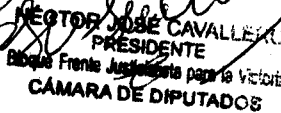 HÉCTOR JOSÉ CAVALLERO
PRESIDENTE
Bloque Frente Justicialista para la Victoria
CÁMARA DE DIPUTADOS